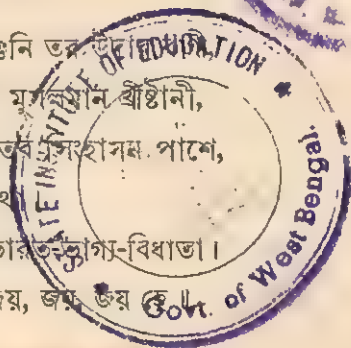 শুনি তব উদার বাণী,
মুসলমান খ্রীষ্টানী,
তব সিংহাসন পাশে,
ভারত-ভাগ্য-বিধাতা।
জয়, জয়, জয় হে॥
STATE INSTITUTE OF EDUCATION *
Govt. of West Bengal.